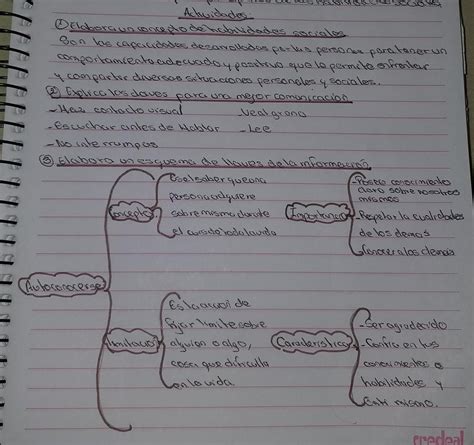 Actividades
① Elabora un concepto de habilidades sociales
Son las capacidades desarrolladas por las personas para tener un
comportamiento adecuado y positivo que le permite enfrentar
y compartir diversas situaciones personales y sociales.
② Explica las claves para una mejor comunicación
- Haz contacto visual
- Ve al grano
- Escuchar antes de Hablar
- Lee
- No interrumpas
③ Elabora un esquema de llaves de la información
Autoconocerse
Concepto
persona adquiere
sobre misma durante
Importancia
- Poseer conocimiento
claro sobre nosotros
mismos
- Respetar la cualidades
de los demas
- Conocer a los demas
limitación
Es la accion de
fijar limite sobre
alguien o algo,
cosa que dificulta
en la vida
Caracteristica
- Ser agradecido
- Confía en tus
conocimientos o
habilidades y
en ti mismo.
credeal